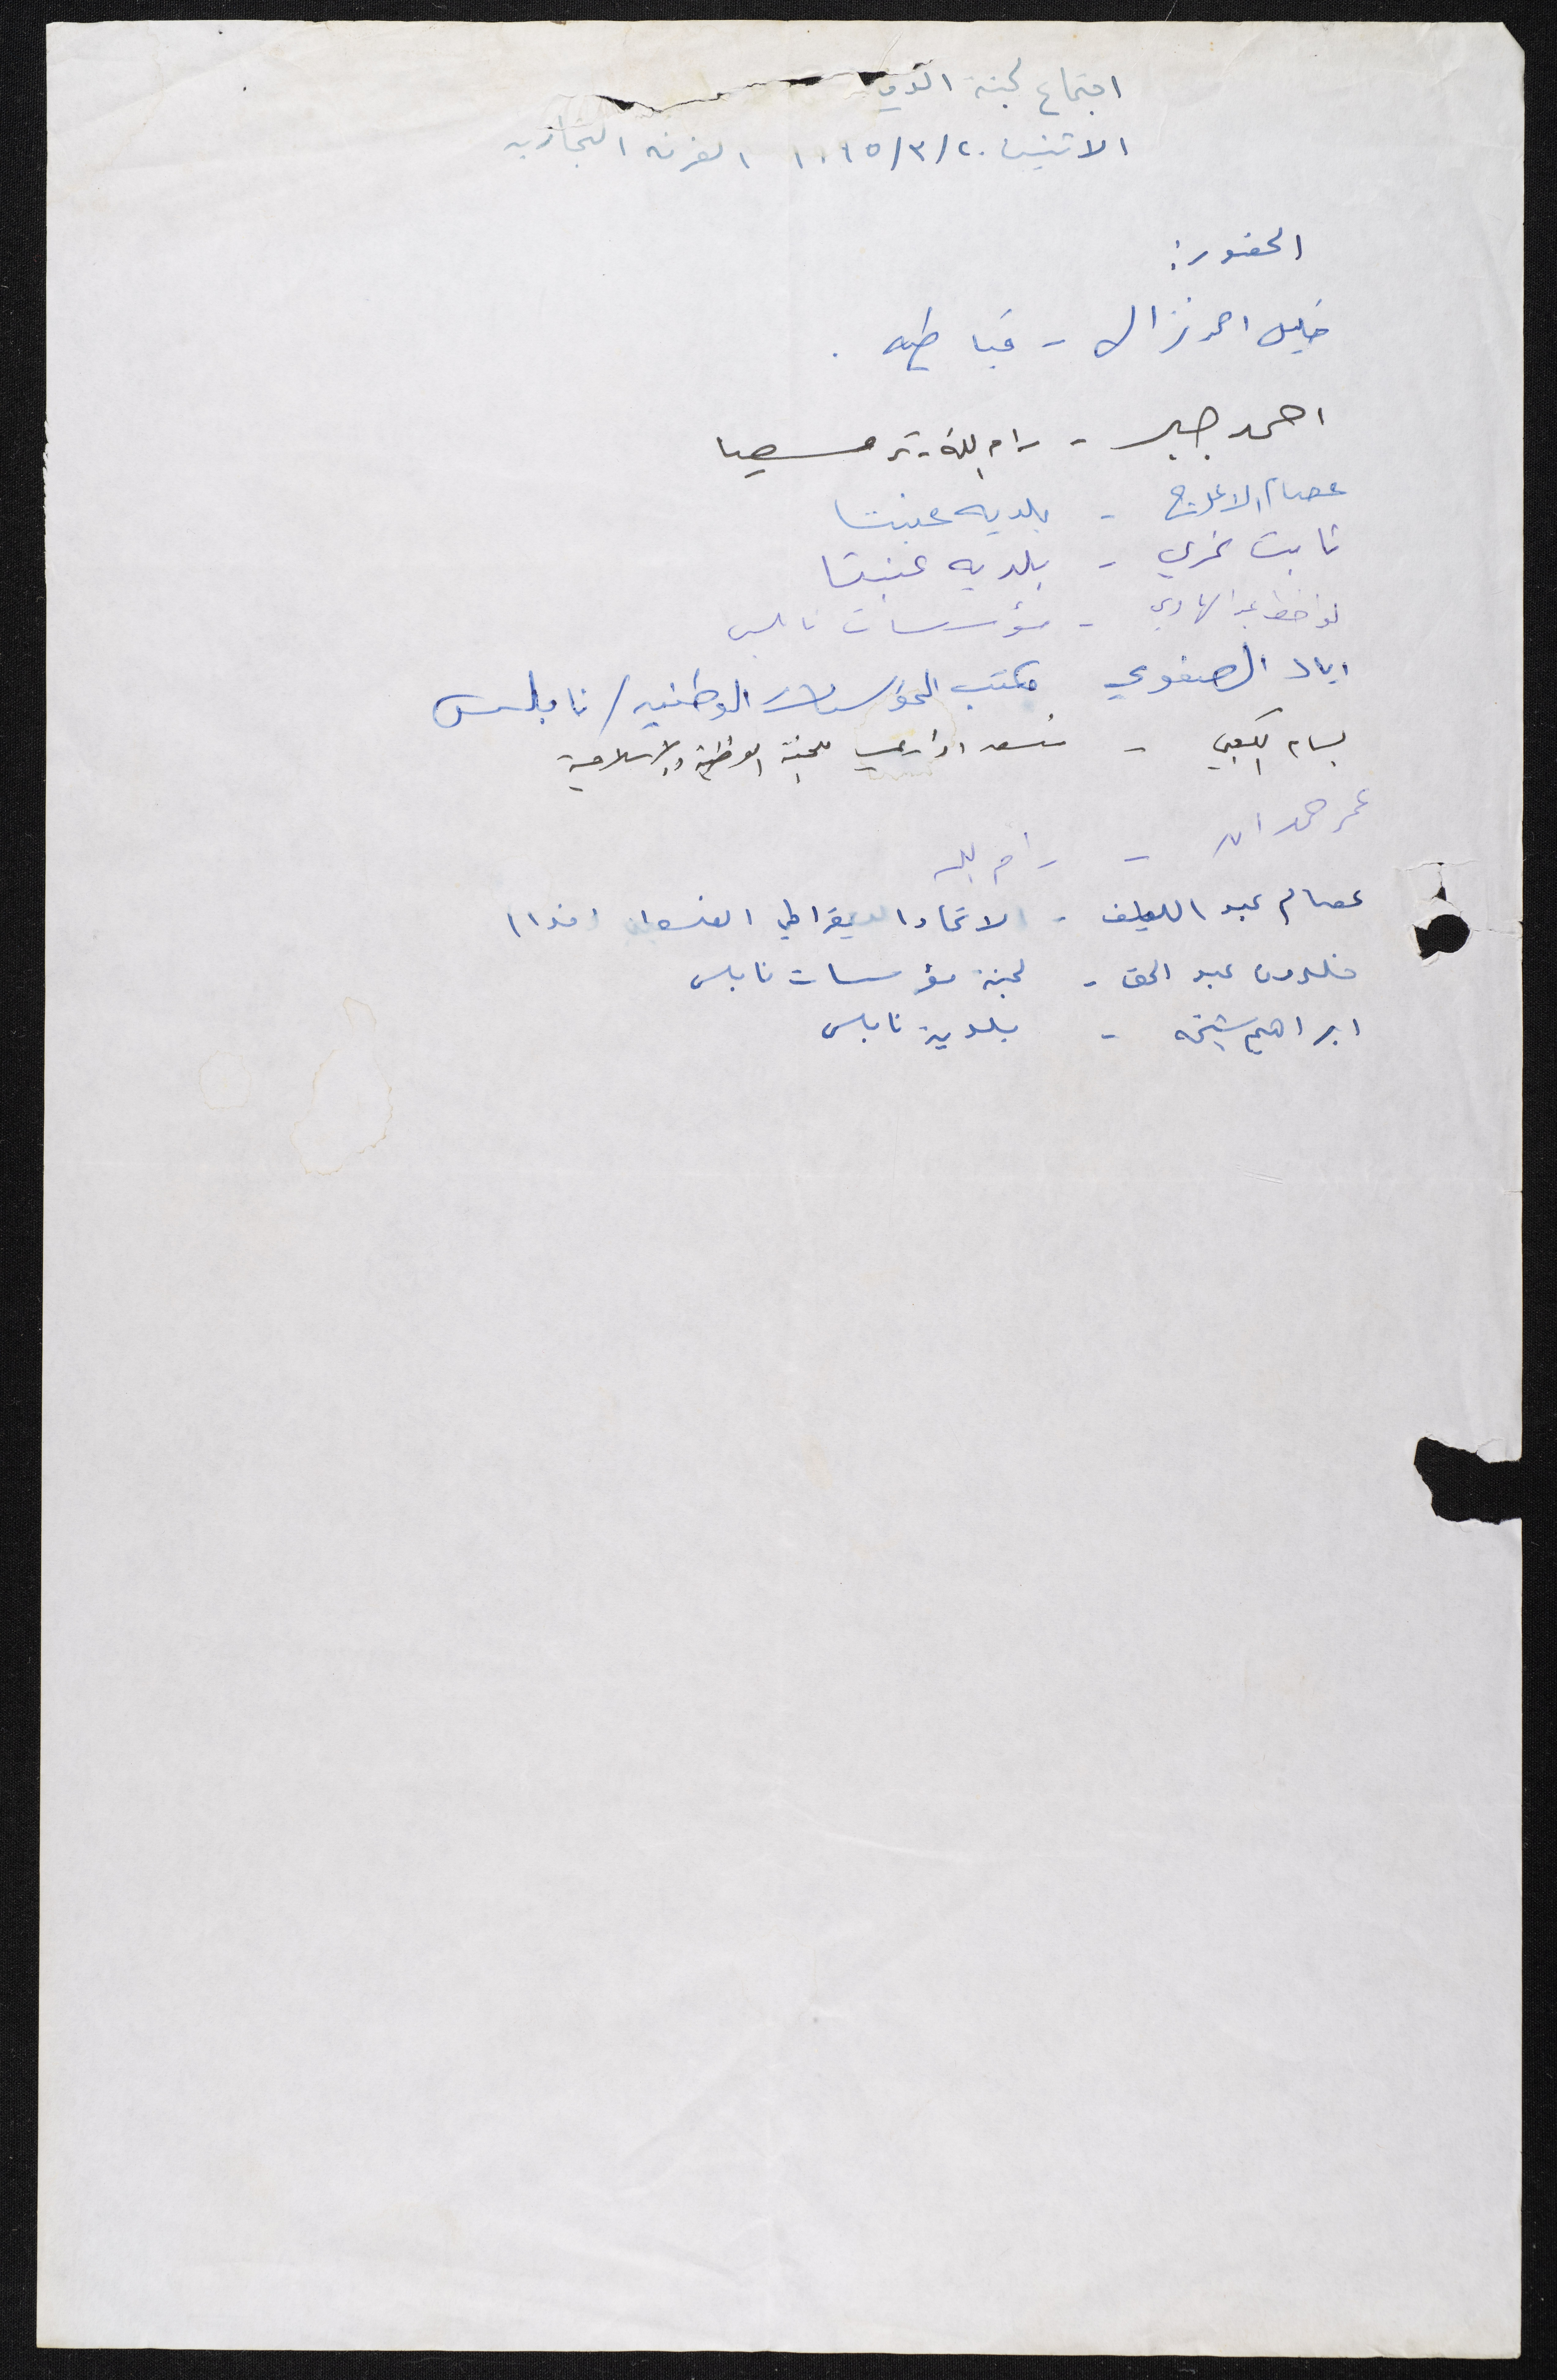 اجتماع لجنة
الاثنين ٢٠/٣/٩٥ الغرفه التجاريه
الحضور:
خليل احمد نزال - قباطيه.
احمد جبر - رام الله - ترمسعيا
عصام الاعرج - بلديه عنبتا
ثابت - بلديه عنبتا
عبد الهادي - مؤسسات نابلس
اياد الصفوي مكتب المؤسسات الوطنيه / نابلس
بسام الكعبي - منسق اداري للجنة الوطنية والاسلامية
عمر حمدان - رام الله
عصام عبد اللطيف - الاتحاد الديمقراطي الفلسطيني (فدا)
خلدون عبد الحق - لجنة مؤسسات نابلس
ابراهيم شيخه - بلدية نابلس